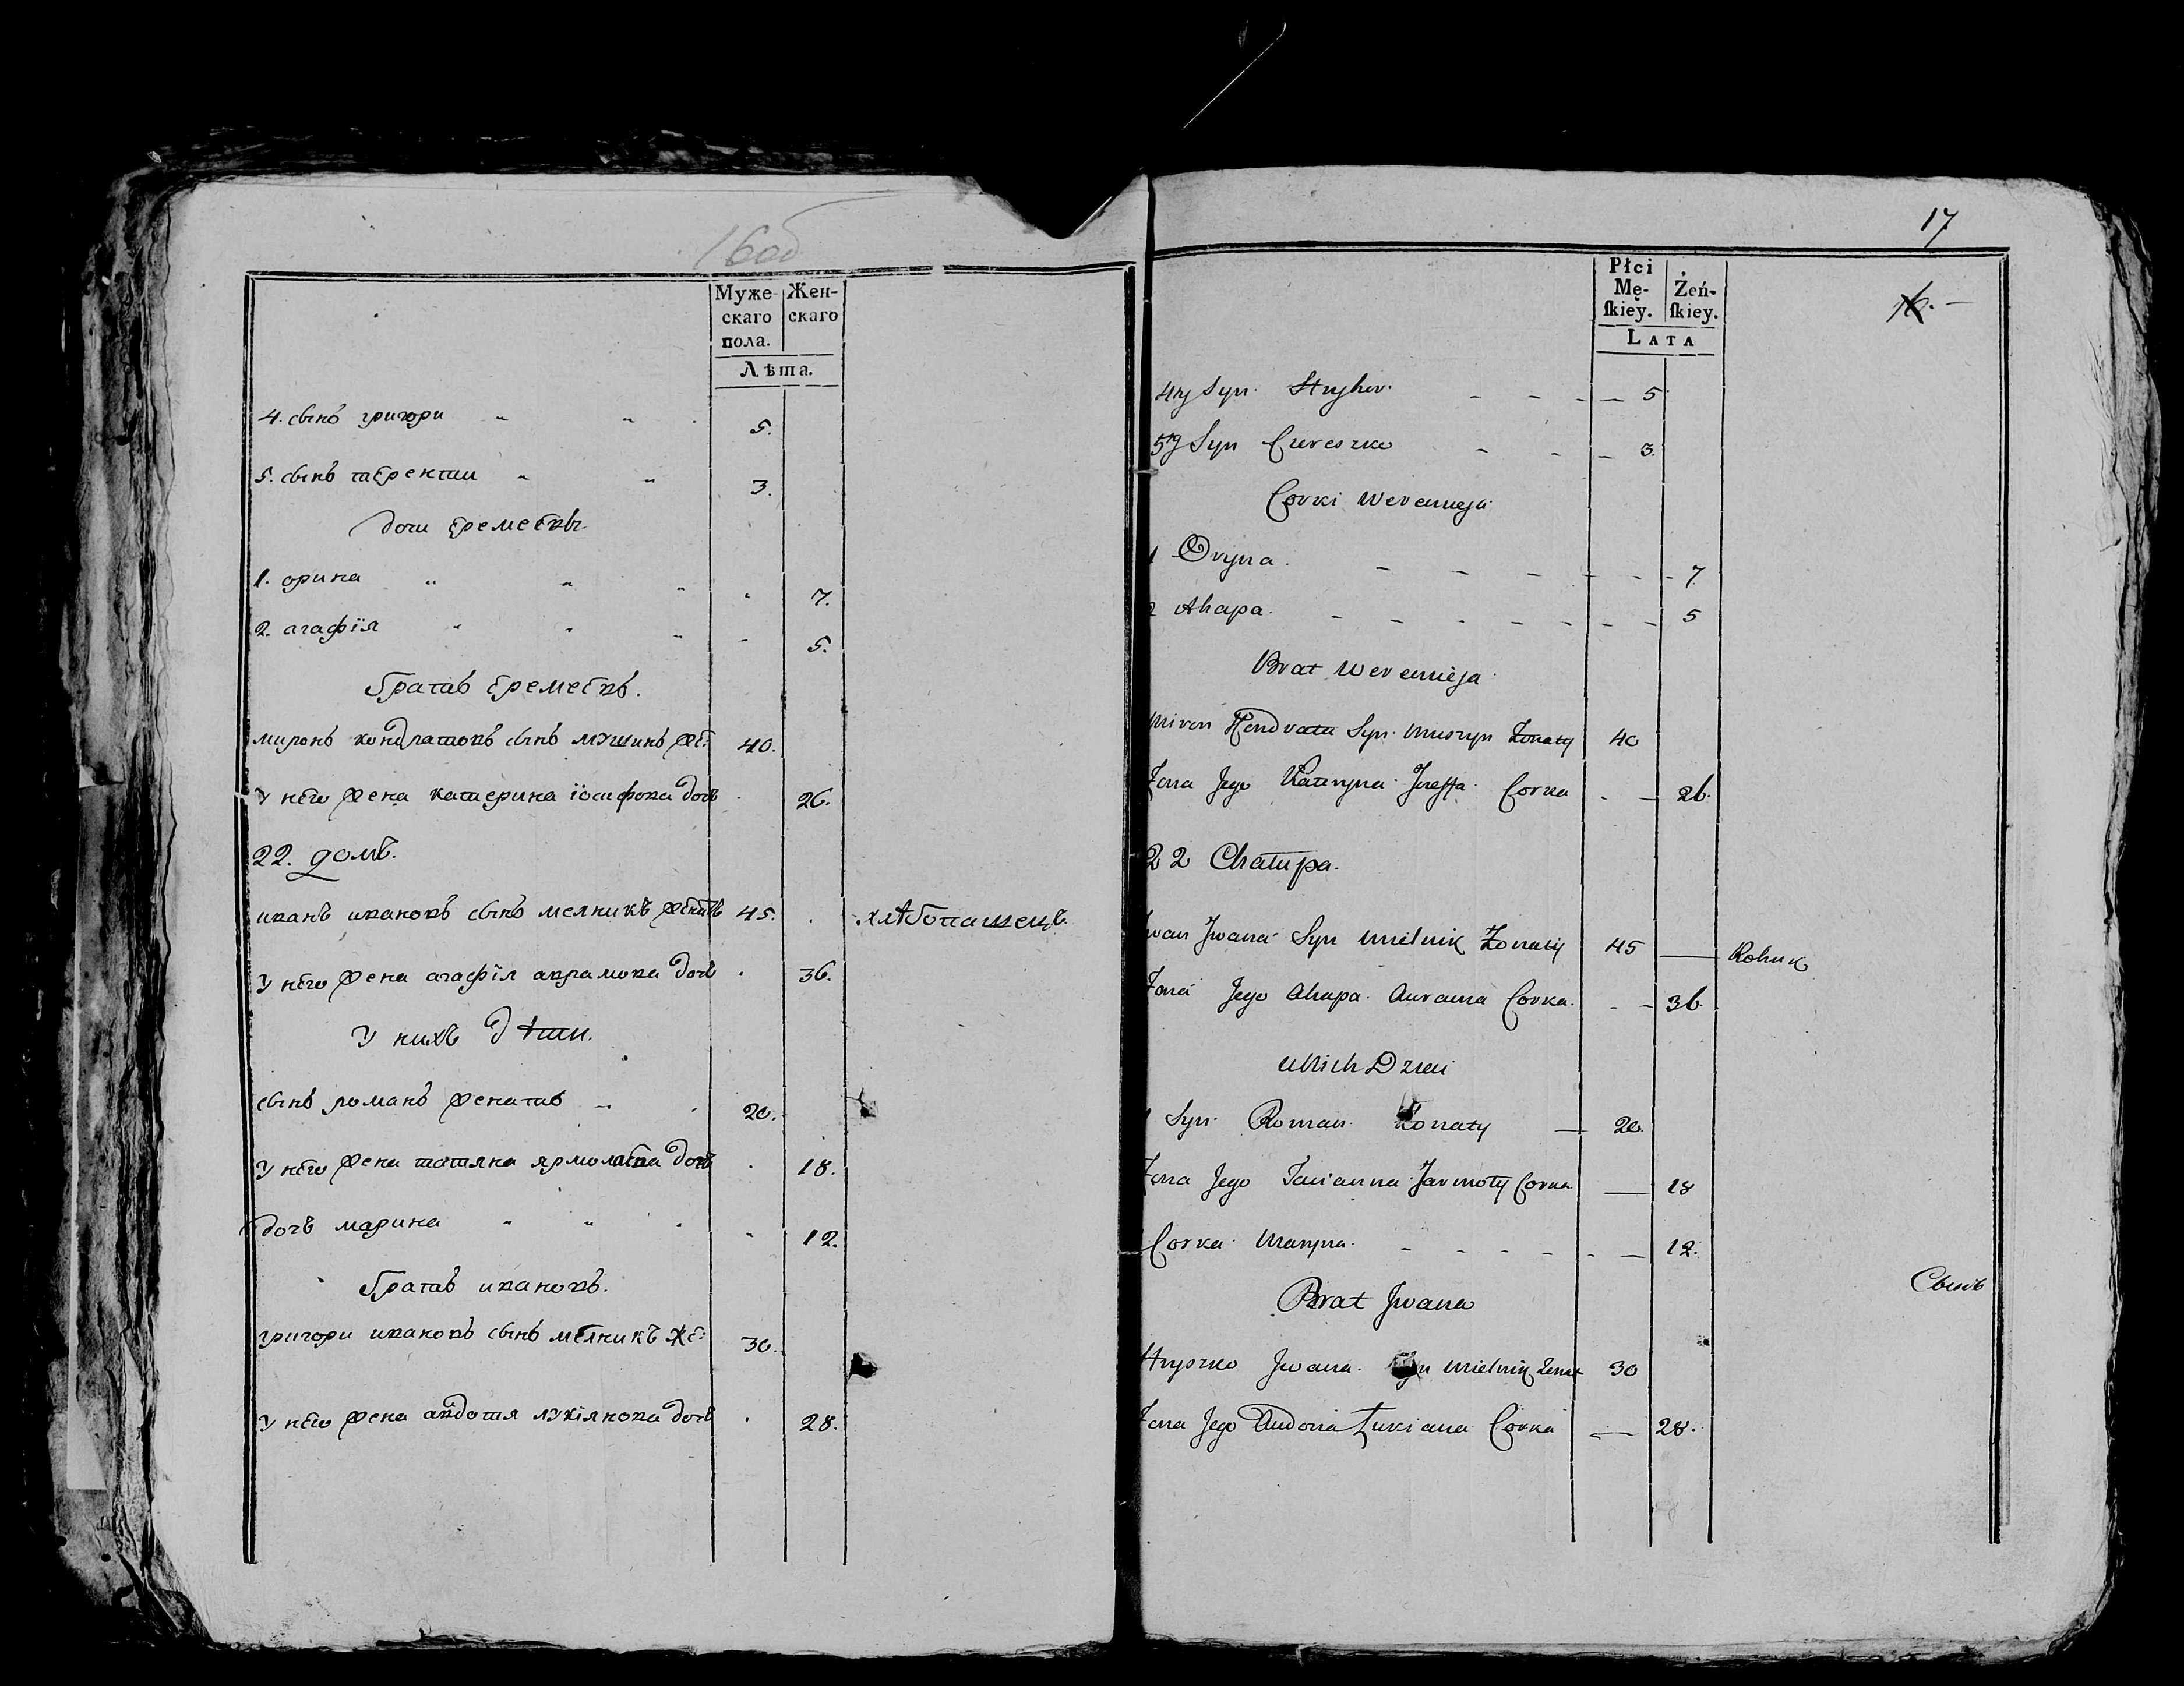 16об
Муже-
скаго
пола.
Жен-
скаго
Лѣта.
4. сынъ григори " " 5.
5. сынъ терентии " " 3.
дочи еремеевы
1. орина " " " 7.
2. агафїя " " " 5.
братъ еремеевъ.
миронъ кондратовъ сынъ мушинъ же: 40.
у него жена катерина їосифова дочь 26.
22. домъ.
иванъ ивановъ сынъ мелникъ женатъ 45. хлѣбопашецъ.
у него жена агафїя аврамова дочь 36.
у нихъ дѣти.
сынъ романъ женатъ 20.
у него жена татяна ярмолаева дочь 18.
дочь марина " " " 12.
братъ ивановъ.
григори ивановъ сынъ мелникъ же: 30.
у него жена авдотя лукїянова дочь 28.
17
Płci
Mę-
ſkiey.
Żeń-
ſkiey.
LATA
16. —
4ty Syn Hryhor — 5
5ty Syn — 3.
Corki Weremieja
1 Oryna — 7.
2 Ahapa — 5
Brat Weremieja
Miron Kondrata Syn Muszyn Żonaty 40
Żona Jego Kateryna Jozeffa Corka — 26.
22 Chałupa.
Iwan Jwana Syn Mielnik Żonaty 45 — Rolnik
Żona Jego Ahapa Aurama Corka — 36.
U Nich Dzieci
1 Syn Roman Żonaty — 20
Żona Jego Tacianna Jarmoły Corka — 18
Corka Maryna — 12.
Brat Jwana
Сынъ
Hryszko Jwana Syn Mielnik Żonat 30
Żona Jego Audocia Łukiana Corka — 28.